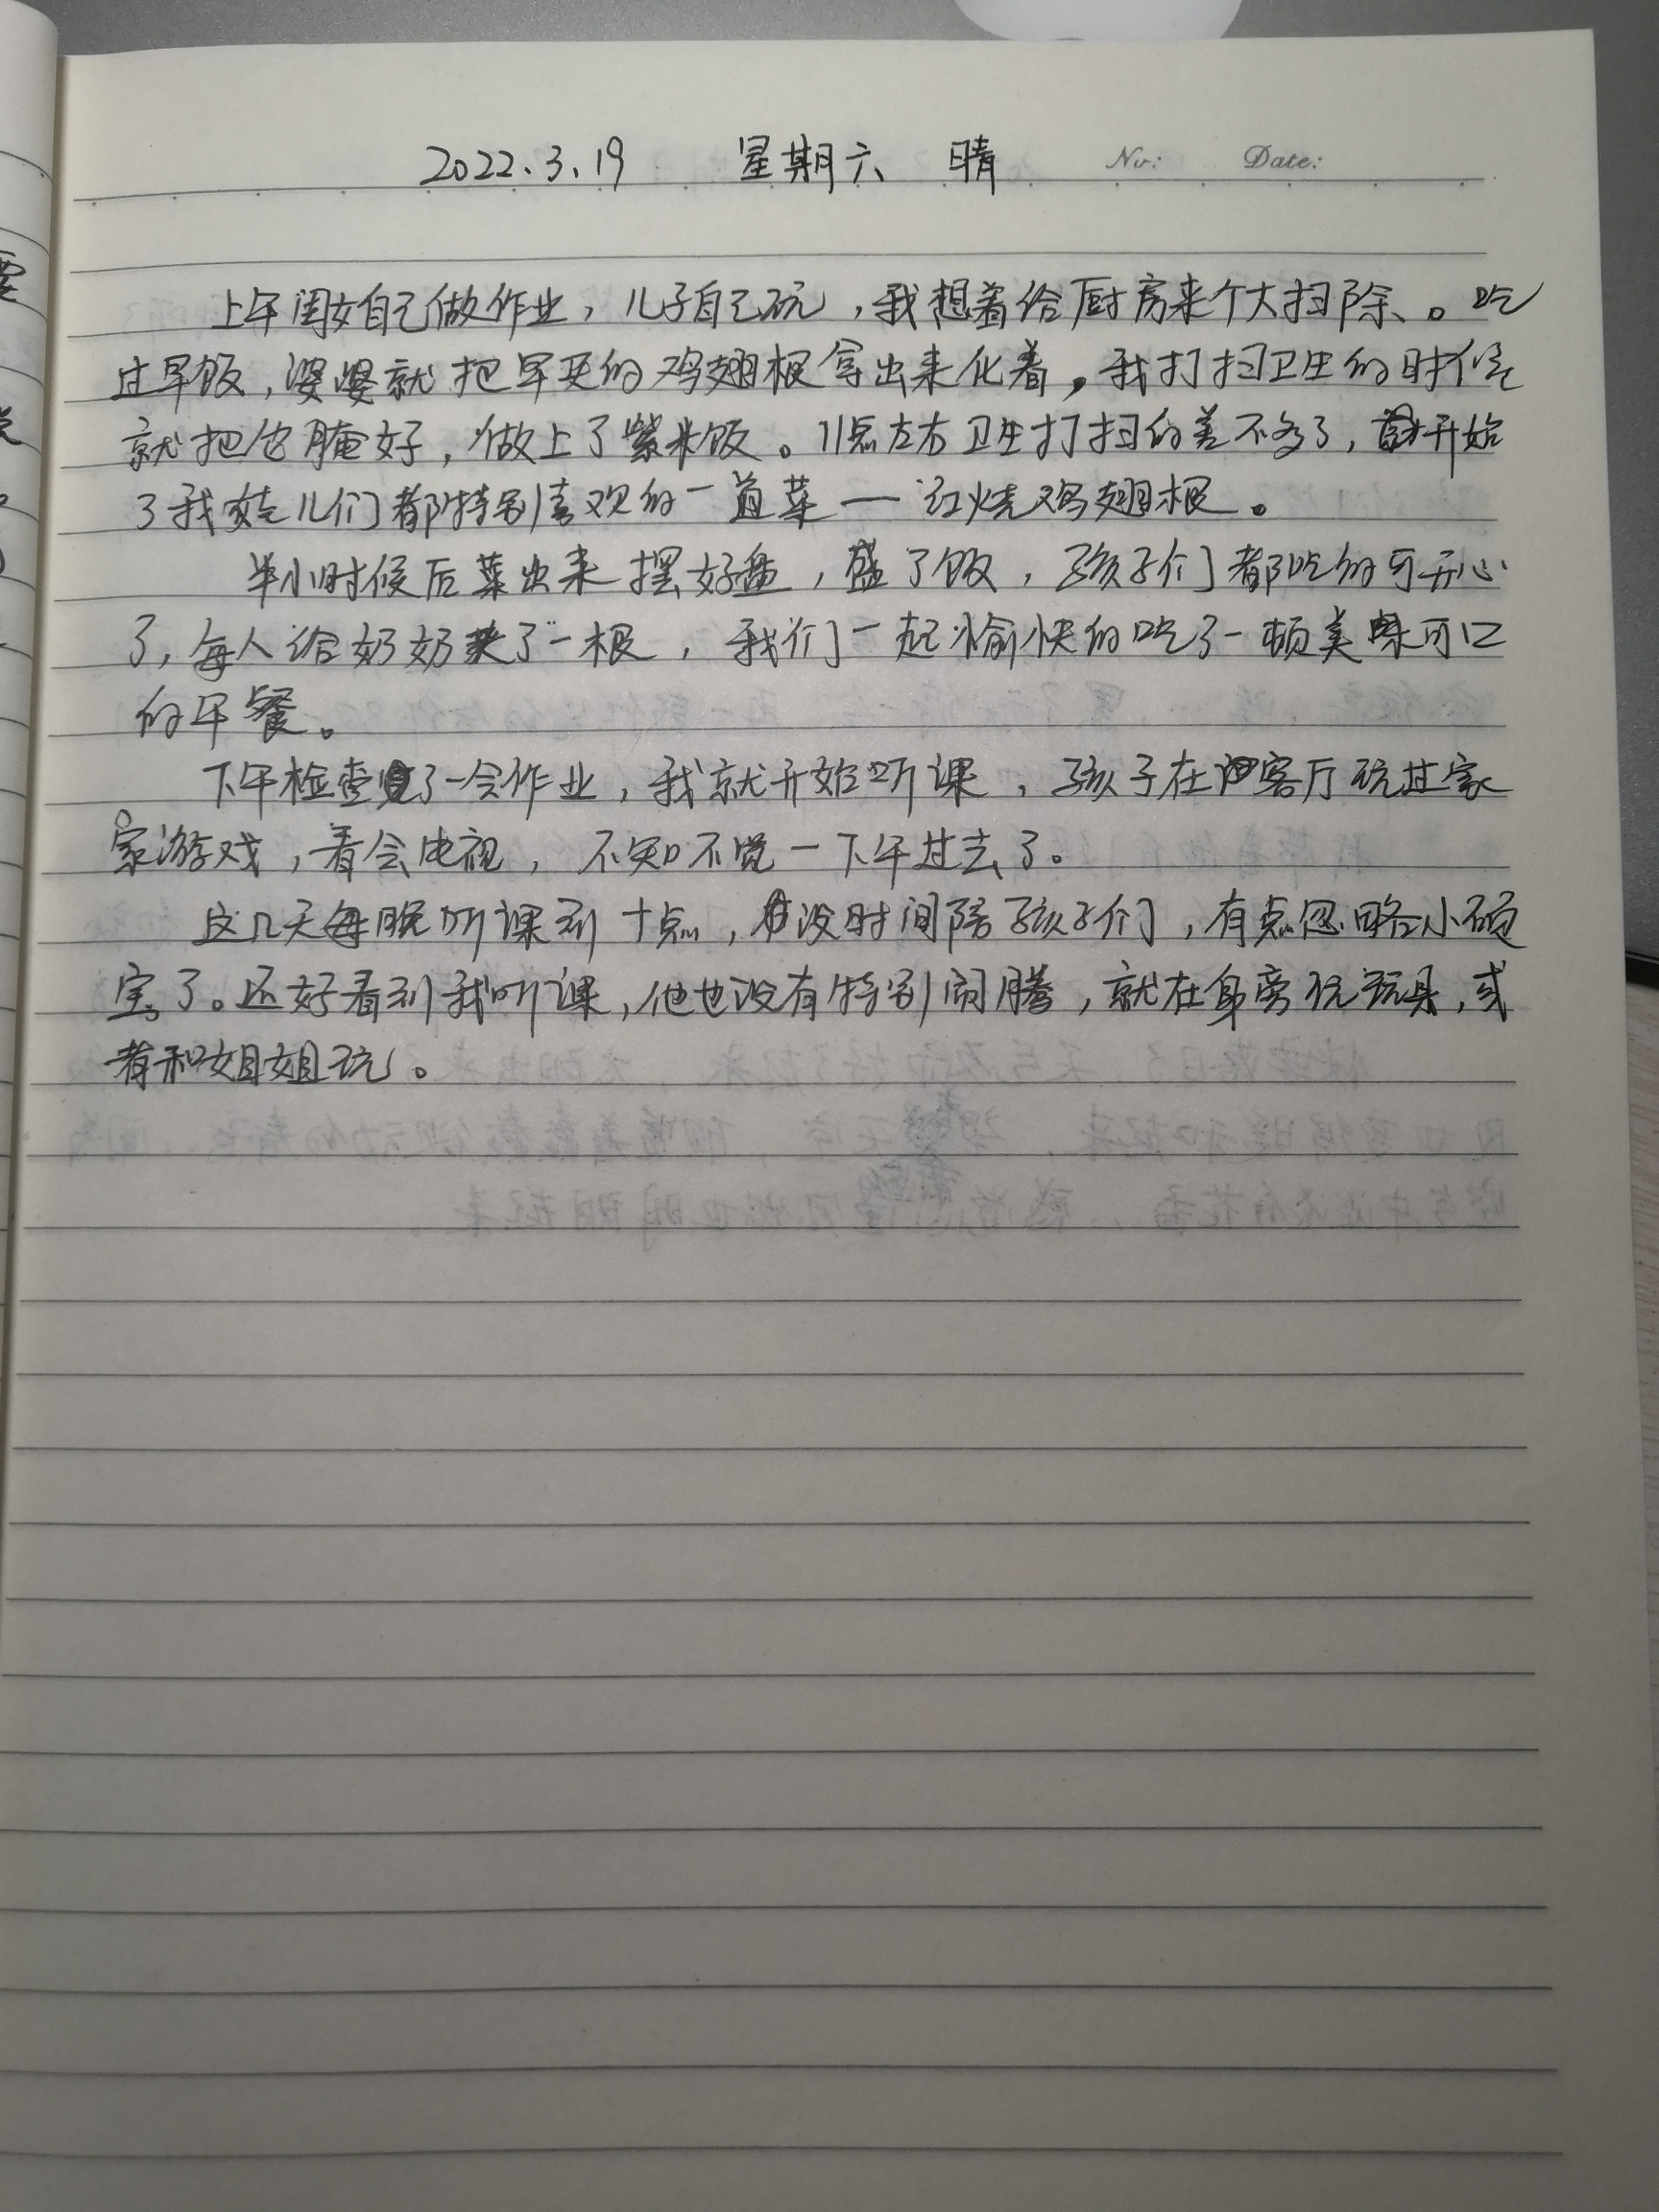 2022.3.19 星期六 晴 No: Date:
上午闺女自己做作业，儿子自己玩，我想着给厨房来个大扫除。吃
过早饭，婆婆就把早买的鸡翅根拿出来化着，我打扫卫生的时候
就把它腌好，做上了紫米饭。11点左右卫生打扫的差不多了，开始
了我家儿们都特别喜欢的一道菜一红烧鸡翅根。
半小时候后菜出来摆好盘，盛了饭，孩子们都吃的可开心
了，每人给奶奶夹了一根，我们一起愉快的吃了一顿美味可口
的午餐。
下午检查了一会作业，我就开始听课，孩子在客厅玩过家
家游戏，看会电视，不知不觉一下午过去了。
这几天每晚听课到十点，没时间陪孩子们，有点忽略小硕
宝了。还好看到我听课，他也没有特别闹腾，就在身旁玩玩具，或
者和姐姐玩。